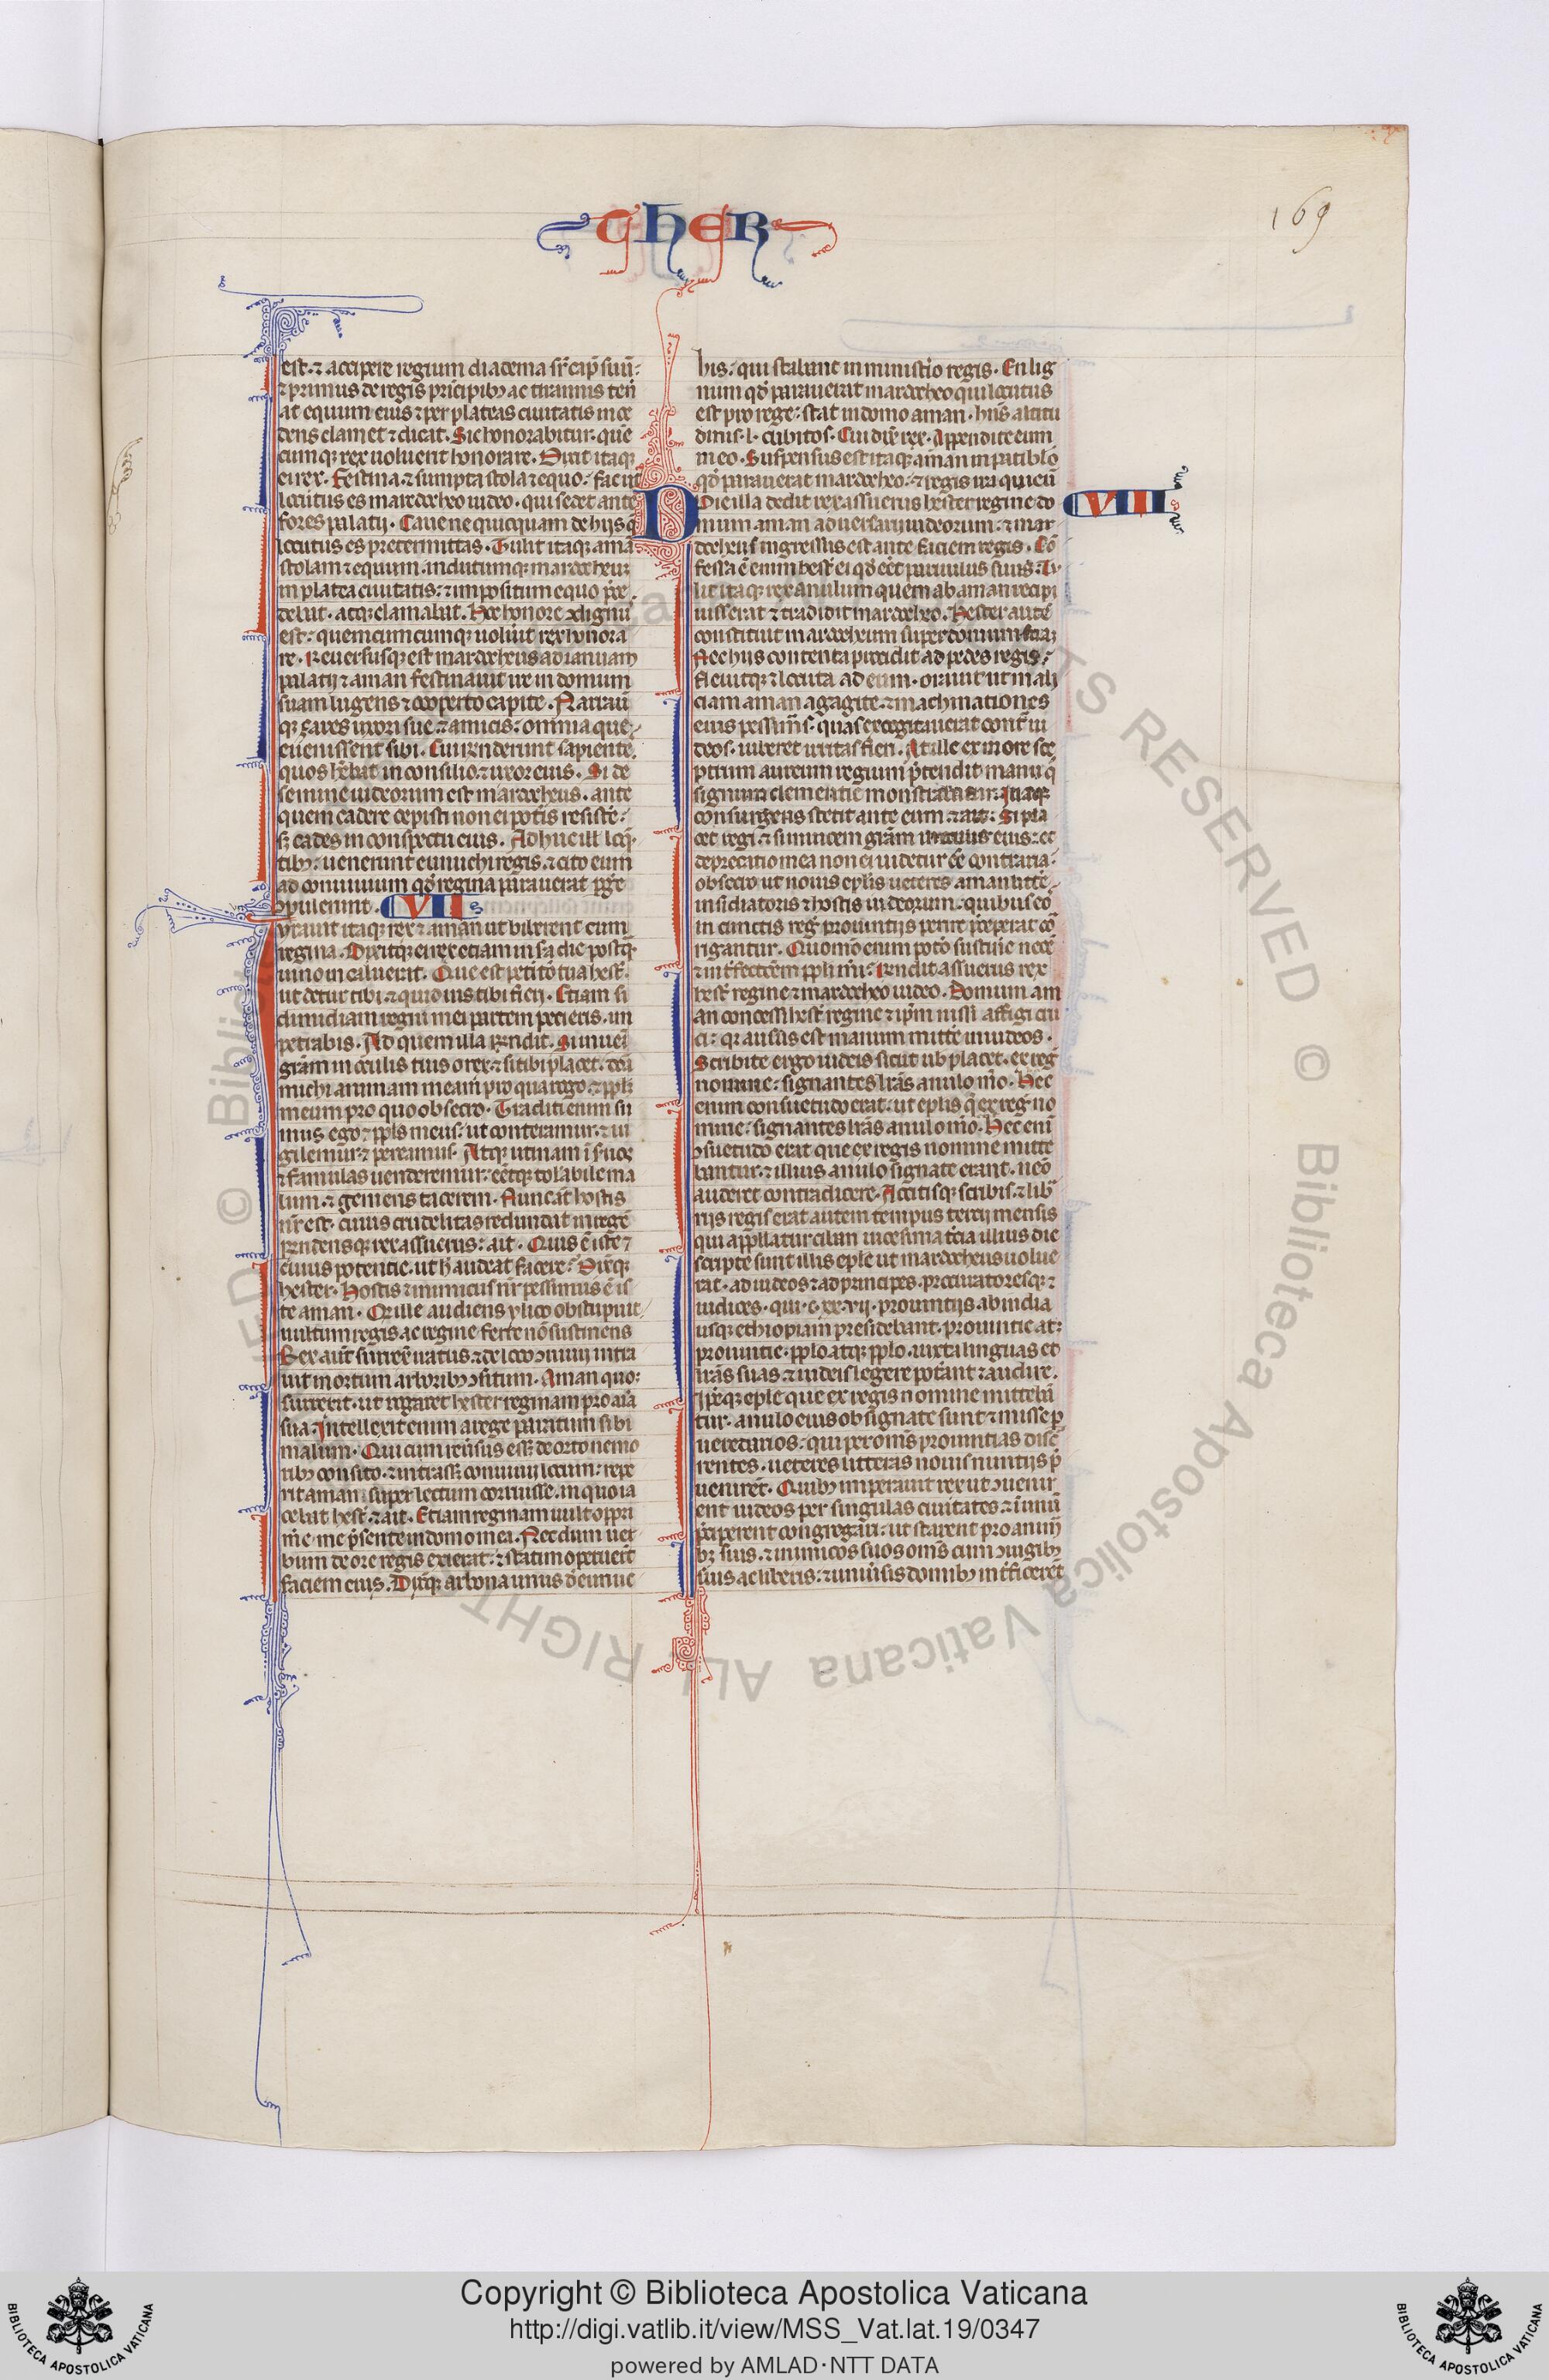 THER
169
est. ⁊ accipere regium diadema sr̄ cap̄ suū:
⁊ primus de regis principibꝫ ac tirannis ten
at equum eius ⁊ per plateas ciuitatis ince
dens clamet ⁊ dicat. Sic honorabitur. quē
cumqꝫ rex uoluerit honorare. Dixit itaqꝫ
ei rex. Festina. ⁊ sumpta stola ⁊ equo: fac ut
locutus es mardocheo iudeo. qui sedet ante
fores palatij. Caue ne quicquam de hijs q̄
locutus es pretermittas. Tulit itaqꝫ amā
stolam ⁊ equum. indutumqꝫ mardocheuꝫ
in platea ciuitatis: ⁊ impositum equo p̄ce
debat. atqꝫ clamabat. Hoc honore ꝯdignus
est: quemcumcumqꝫ uoluit rex honora
re. Reuersusqꝫ est mardocheus ad ianuam
palatij ⁊ aman festinauit ire in domum
suam lugens ⁊ cooperto capite. Narraū
qꝫ zares uxori sue ⁊ amicis: omnia que
euenissent sibi. Cui rn̄derunt sapiente
quos hēbat in consilio. ⁊ uxor eius. Si de
semine iudeorum est mardocheus. ante
quem cadere cepisti non ei potis resiste:
sꝫ cades in conspectu eius. Adhuc ill loq̄
tibꝫ: uenerunt eunuchi regis. ⁊ cito eum
ad conuiuium qd̄ regina parauerat p̄ge
ꝯpulerunt. VII
Ntrauit itaqꝫ rex ⁊ aman ut biberent cum
regina. Dixitqꝫ ei rex etiam in sa die postq̄
uino incaluerat. Que est petitō tua hest̄.
ut detur tibi. ⁊ quid uis tibi fieri. Etiam si
dimidiam regni mei partem pecieris. im
petrabis. Ad quem illa rn̄dit. Si inueni
grām in oculis tuis o rex. ⁊ si tibi placet. dōa
michi animam meam pro qua rogo. ⁊ ppl̄m
meum pro quo obsecro. Traditi enim su
mus ego ⁊ ppl̄s meus: ut conteramur. ⁊ iu
gulemur ⁊ pereamus. Atqꝫ utinam ī s̄uos
⁊ famulas uenderemur: eētqꝫ tolābile ma
lum. ⁊ gemens tacerem. Nunc aūt hostis
nr̄ est. cuius crudelitas redundat in regē
Rn̄densqꝫ rex assuerus: ait. Quis ē iste ⁊
cuius potentie. ut h̄ audeat facere: Dixqꝫ
hester. Hostis ⁊ inimicus nr̄ pessimus ē is
te aman. Q̄ ille audiens ylico obstupuit
uultum regis ac regine ferre nō sustinens
Rex aūt surrexit iratus. ⁊ de loco ꝯuiuij intra
uit in ortum arboribꝫ ꝯsitum. Aman quoꝫ
surrexit. ut rogaret hester reginam pro aīa
sua. Intellexit enim a rege paratum sibi
malum. Qui cum reūsus eēꝫ de orto nemo
ribꝫ consito. ⁊ intrasꝫ conuiuij locum: repe
rit aman super lectum corruisse. in quo ia
cebat hest̄. ⁊ ait. Etiam reginam uult oppri
m̄e. me p̄sente in domo mea. Nec dum uer
bum de ore regis exierat: ⁊ statim operuerūt
faciem eius. Dixqꝫ arbona unus d̄ eunuc
his: qui stabant in ministerio regis. En lig
num qd̄ parauerat mardocheo qui locutus
est pro rege: stat in domo aman. hn̄s altitu
dinis .l. cubitos. Cui dix̄ rex. Appendite eum
in eo. Suspensus est itaqꝫ aman in patiblo
qd̄ parauerat mardocheo: ⁊ regis ira quieuit
Die illa dedit rex assuerus hester regine do VIII
mum aman aduersarij iudeorum. ⁊ mar
docheus ingressus est ante faciem regis. Cō
fessa ē enim hest̄ ei qd̄ eēt patruus suus. Tu
lit itaqꝫ rex anulum quem ab aman recipi
iusserat ⁊ tradidit mardocheo. Hester autē
constituit mardocheum super domum suaꝫ
Nec hijs contenta procidit ad pedes regis:
fleuitqꝫ ⁊ locuta ad eum. orauit ut mali
ciam aman agagite. ⁊ machinationes
eius pessimas. quas excogitauerat cont̄ iu
deos. iuberet irritas fieri. At ille ex more sce
ptrum aureum regium p̄tendit manu q̄
signum clementie monstrabatur. Itaqꝫ
consurgens stetit ante eum. ⁊ ait: Si pla
cet regi. ⁊ si inueni grām in oculis eius: et
deprecatio mea non ei uidetur eē contraria:
obsecro ut nouis epl̄is ueteres aman litte
insidiatoris ⁊ hostis iudeorum. quibus eo
in cunctis reḡ prouintijs perire p̄ceperat cō
rigantur. Quomō enim potō sustin̄e necē
⁊ int̄fectōem ppl̄i mi: Rn̄dit assuerus rex
hest̄ regine ⁊ mardocheo iudeo. Domum am
an concessi hest̄ regine ⁊ ip̄m iussi affigi cru
ci: qꝛ ausus est manum mitt̄e in iudeos.
Scribite ergo iudeis sicut uob̄ placet. ex reḡ
nomine: signantes lr̄as anulo mō. Hec
enim consuetudo erat: ut epl̄is q̄ ex reḡ no
mine: signantes lr̄as anulo mō. Hec enī
ꝯsuetudo erat que ex regis nomine mitte
bantur. ⁊ illius anulo signate erant. nēo
auderet contradicere. Accitisqꝫ scribis. ⁊ libr̄
rijs regis erat autem tempus tercij mensis
qui appellatur ciban uicesima tercia illius die
scripte sunt illis epl̄e ut mardocheus uolue
rat. ad iudeos ⁊ ad principes. procuratoresqꝫ ⁊
iudices. qui .c.xx.vii. prouintijs ab india
usqꝫ ethiopiam presidebant. prouintie atꝫ
prouintie: ppl̄o atqꝫ ppl̄o. iuxta linguas et
lr̄as suas. ⁊ iudeis legere potant ⁊ audire.
Ip̄eqꝫ epl̄e que ex regis nomine mittebā
tur. anulo eius obsignate sunt ⁊ misse p̄
ueredarios: qui per omīs prouintias disc̄
rentes. ueteres litteras nouis nuntijs p̄
uenirēt. Quibꝫ imperauit rex ut ꝯuenir
ent iudeos per singulas ciuitates. ⁊ ī unū
p̄ciperent congregari: ut starent pro animi
bꝫ suis. ⁊ inimicos suos omīs cum ꝯiugibꝫ
suis ac liberis: ⁊ uniūsis domibꝫ int̄ficerēt
© Biblioteca Apostolica Vaticana ALL RIGHTS RESERVED
Copyright © Biblioteca Apostolica Vaticana
http://digi.vatlib.it/view/MSS_Vat.lat.19/0347
powered by AMLAD·NTT DATA
BIBLIOTECA APOSTOLICA VATICANA
BIBLIOTECA APOSTOLICA VATICANA